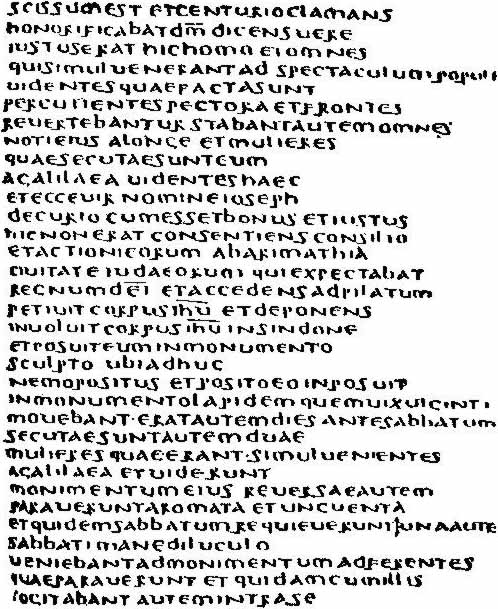 scissum est et centurio clamans
honorificabat d̅m̅ dicens uere
iustus erat hic homo et omnes
qui simul uenerant ad spectaculum populi
uidentes quae facta sunt
percutientes pectora et frontes
reuertebantur stabant autem omnes
noti eius a longe et mulieres
quae secutae sunt eum
a galilaea uidentes haec
et ecce uir nomine ioseph
decurio cum esset bonus et iustus
hic non erat consentiens consilio
et actioni eorum ab arimathia
ciuitate iudaeorum qui expectabat
regnum d̅e̅i̅ et accedens ad pilatum
petiuit corpus i̅h̅u̅ et deponens
inuoluit corpus i̅h̅u̅ in sindone
et posuit eum in monumento
sculpto ubi adhuc
nemo positus et posito eo inposuit
in monumento lapidem quem uix uiginti
mouebant · erat autem dies ante sabbatum
secutae sunt autem duae
mulieres quae erant · simul uenientes
a galilaea et uiderunt
monimentum eius reuersae autem
parauerunt aromata et unguenta
et quidem sabbatum requieuerunt una aute
sabbati mane diluculo
ueniebant ad monimentum adferentes
quae parauerunt et quidam cum illis
cogitabant autem intra se